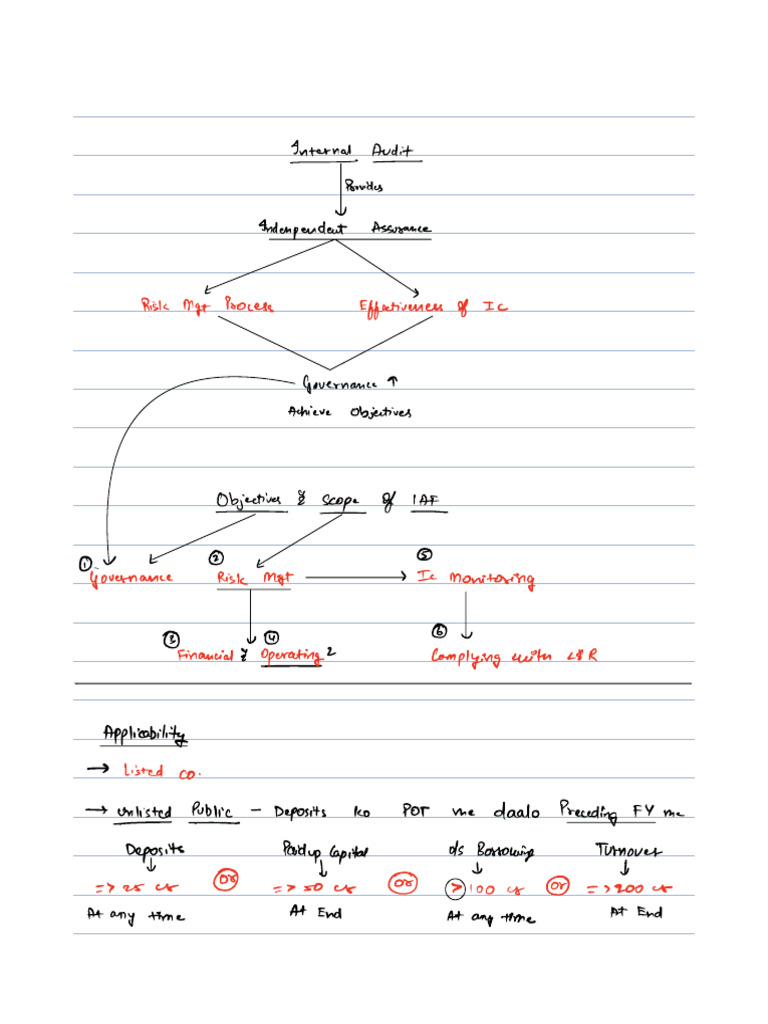 Internal Audit
Provides
Indenpendent Assurance
Risk Mgt Process Effectiveness of Ic
Governance ↑
Achieve Objectives
Objectives & Scope of IAF
① ② ⑤
Governance Risk Mgt Ic Monitoring
③ ④ ⑥
Financial & Operating 2 Complying with L&R
Applicability
→ Listed co.
→ Unlisted Public - Deposits ko POT me daalo Preceding FY me
Deposits Paidup Capital o/s Borrowing Turnover
=> 25 cr or => 50 cr or > 100 cr or => 200 cr
At any time At End At any time At End